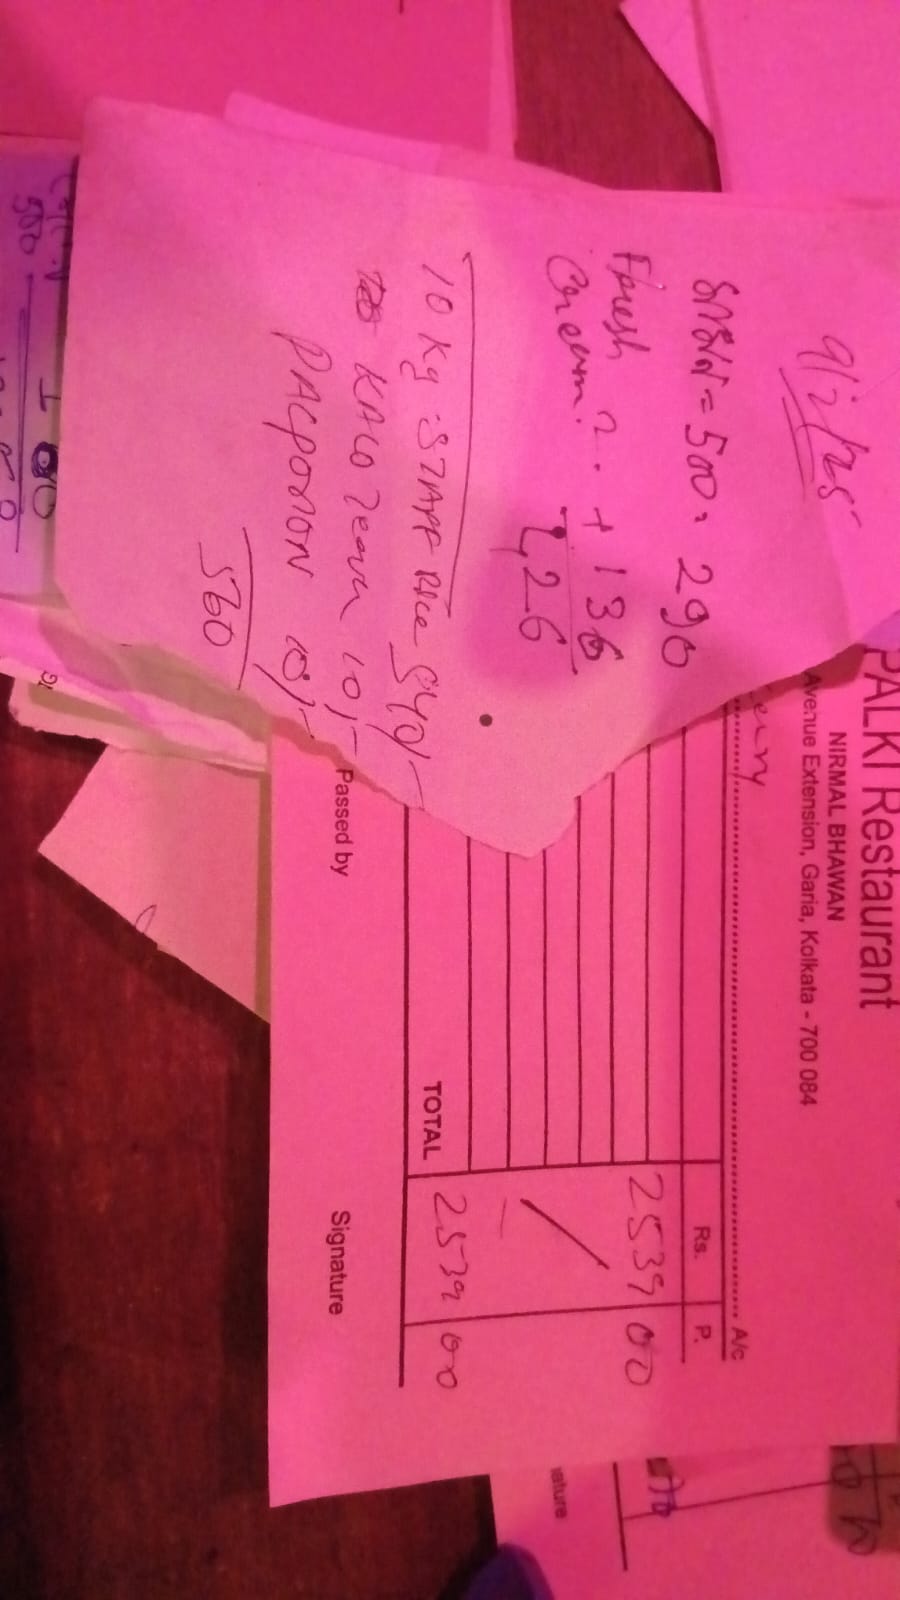 9/2/25
= 500, 290
Fresh
Cream } + 136
426
10 kg STAFF Rice 540/-
KALO Zeera 10/-
PACPORON 10/-
560
PALKI Restaurant
NIRMAL BHAWAN
Avenue Extension, Garia, Kolkata - 700 084
A/c
Rs. P.
2539 00
TOTAL 2539 00
Passed by Signature